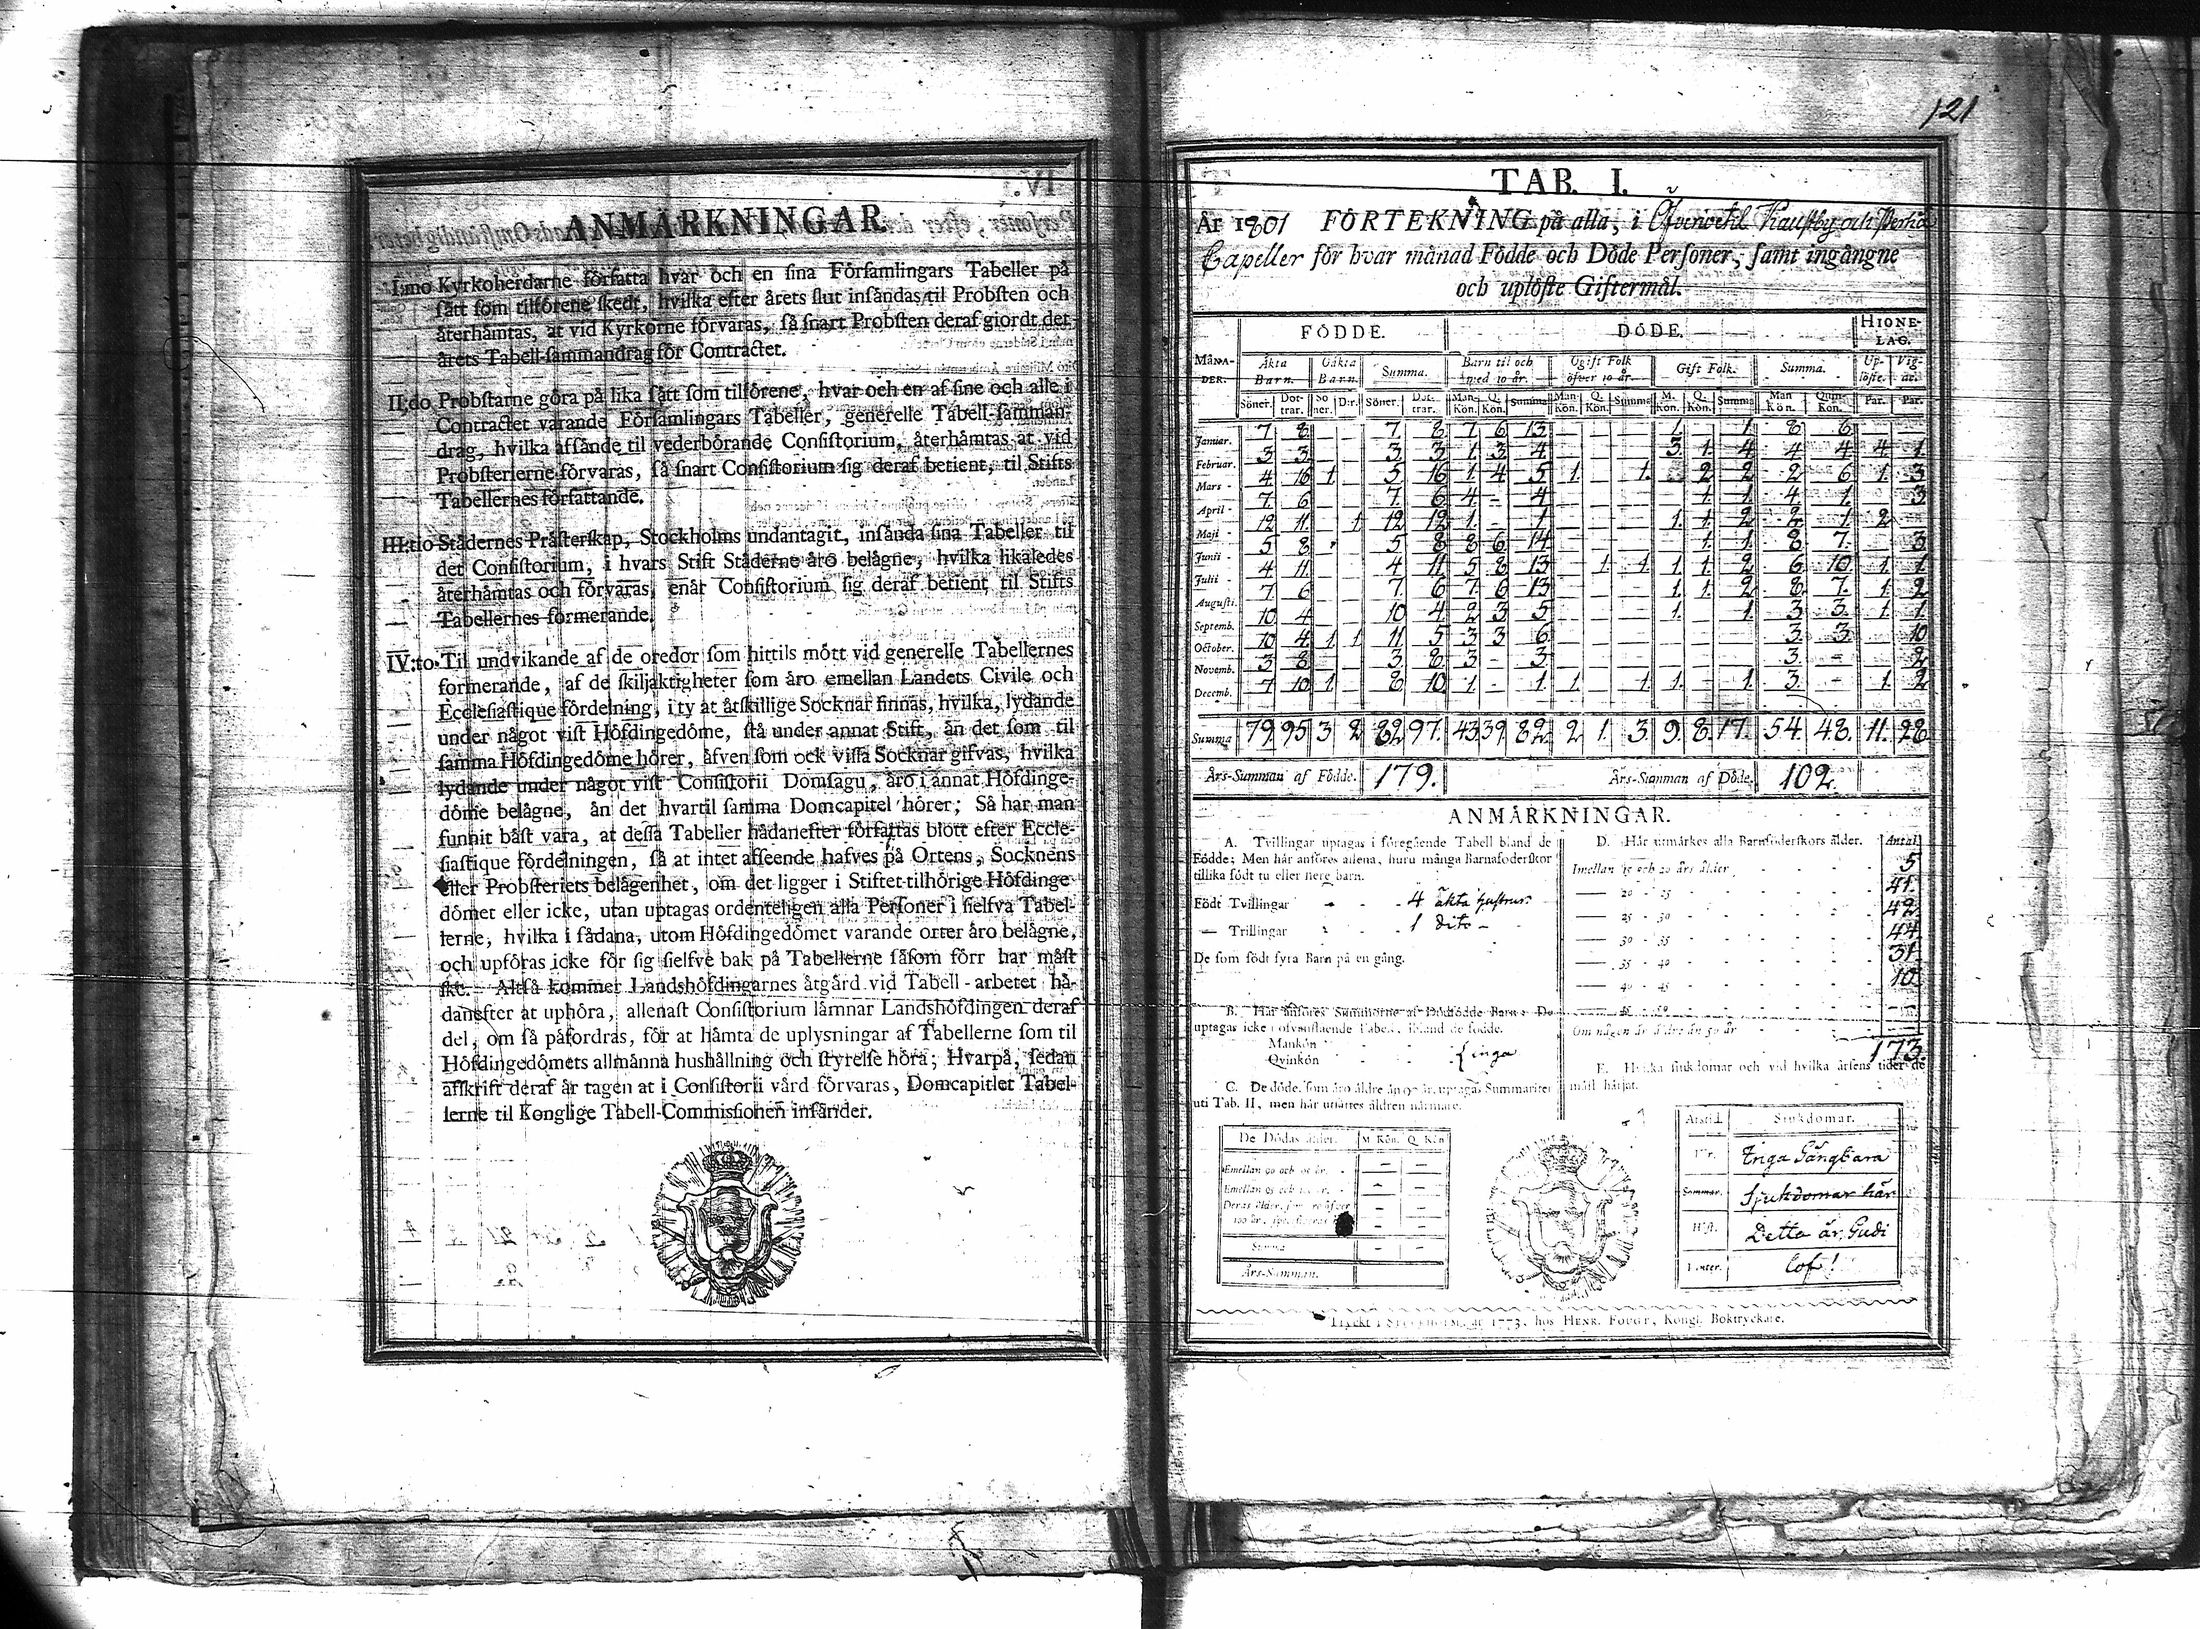 ANMÄRKNINGAR.
I:mo Kyrkoherdarne författa hvar och en ſina Förſamlingars Tabeller på
ſått ſom tilförene ſkedt, hvilka efter årets ſlut inſåndas til Probſten och
återhåmtas, at vid Kyrkorne förvaras, ſå ſnart Probſten deraf giordt det
årets Tabell-ſammandrag för Contractet.
II:do Probſtarne göra på lika ſått ſom tilförene, hvar och en af ſine och alle i
Contractet varande Förſamlingars Tabeller, generelle Tabell-ſamman-
drag, hvilka afſånde til vederbörande Conſiſtorium, återhåmtas at vid
Probſterierne förvaras, ſå ſnart Conſiſtorium ſig deraf betient, til Stifts
Tabellernes författande.
III:tio Stådernes Pråſterſkap, Stockholms undantagit, inſånda ſina Tabeller til
det Conſiſtorium, i hvars Stift Ståderne åro belågne, hvilka likaledes
återhåmtas och förvaras, enår Conſiſtorium ſig deraf betient, til Stifts
Tabellernes formerande.
IV:to Til undvikande af de oredor ſom hittils mött vid generelle Tabellernes
formerande, af de ſkiljaktigheter ſom åro emellan Landets Civile och
Eccleſiaſtique fördelning, i ty at åtſkillige Socknar finnas, hvilka, lydande
under något viſt Höfdingedöme, ſtå under annat Stift, ån det ſom til
ſamma Höfdingedöme hörer, åfven ſom ock viſſa Socknar gifvas, hvilka
lydande under något viſt Conſiſtorii Domſagu, åro i annat Höfdinge-
döme belågne, ån det hvartil ſamma Domcapitel hörer; Så har man
funnit båſt vara, at deſſa Tabeller hådanefter författas blott efter Eccle-
ſiaſtique fördelningen, ſå at intet afſeende hafves på Ortens, Socknens
eller Probſteriets belågenhet, om det ligger i Stiftet tilhörige Höfdinge-
dömet eller icke, utan uptagas ordenteligen alla Perſoner i ſielfva Tabel-
lerne, hvilka i ſådana, utom Höfdingedömet varande orter åro belågne,
och upföras icke för ſig ſielfve bak på Tabellerne ſåſom förr har måſt
ſke. Altſå kommer Landshöfdingarnes åtgård vid Tabell-arbetet hå-
danefter at uphöra, allenaſt Conſiſtorium låmnar Landshöfdingen deraf
del, om ſå påfordras, för at håmta de uplysningar af Tabellerne ſom til
Höfdingedömets allmånna hushållning och ſtyrelſe höra; Hvarpå, ſedan
afſkrift deraf år tagen at i Conſiſtorii vård förvaras, Domcapitlet Tabel-
lerne til Konglige Tabell-Commiſſionen inſånder.
121
TAB. I.
År 1801 FÖRTEKNING på alla, i Öfvervetil Kaustby och
Capeller för hvar månad Födde och Döde Perſoner, ſamt ingångne
och uplöſte Giftermål.
FÖDDE. DÖDE. HIONE-
LAG.
MÅNA-
DER. Åkta Barn. Oåkta Barn. Summa. Barn til och med 10 år. Ogift Folk öfver 10 år. Gift Folk. Summa. Up-löſte. Vig-de.
Söner. Döt-trar. Sö ner. D:r. Söner. Döt-trar. Man Kön. Q. Kön. Summa Man Kön. Q. Kön. Summa M. Kön. Q. Kön. Summa Man Kön. Quin Kön. Par. Par.
Januar. 7 8 - - 7 8 7 6 13 - - - 1 - 1 8 6
Februar. 3 3 - - 3 3 1 3 4 - - - 3 1 4 4 4 4 1
Mars 4 16 1 - 5 16 1 4 5 1 - 1 2 2 2 6 1 3
April 7 6 - - 7 6 4 - 4 - - - - 1 1 4 1 3
Maji 12 11 - 1 12 12 1 - 1 - - - 1 1 2 2 1 2
Junii 5 8 - 5 8 8 6 14 - - - - 1 1 8 7 - 3
Julii 4 11 - - 4 11 5 8 13 - 1 1 1 1 2 6 10 1 1
Auguſti. 7 6 - - 7 6 7 6 13 - - - 1 1 2 8 7 1 2
Septemb. 10 4 - - 10 4 2 3 5 - - - 1 - 1 3 3 1 1
October. 10 4 1 1 11 5 3 3 6 - - - - - - 3 3 - 10
Novemb. 3 8 - - 3 8 3 - 3 - - - - - - 3 - - 2
Decemb. 7 10 1 - 8 10 1 - 1 1 - 1 1 - 1 3 - 1 2
Summa 79 95 3 2 82 97 43 39 82 2 1 3 9 8 17 54 48 11 28
Års-Summan af Födde. 179. Års-Summan af Döde. 102.
ANMÄRKNINGAR.
A. Tvillingar uptagas i föregående Tabell bland de
Födde; Men hår anföres allena, huru många Barnaföderſkor
tillika födt tu eller flere barn.
Födt Tvillingar - - 4 äkta huſtrur
— Trillingar 1 dito -
De ſom födt fyra Barn på en gång.
B. Hår anföres Summorne af Dödfödde Barn: De
uptagas icke i ofvanſtående Tabell, ibland de födde.
Mankön
Qvinkön } inga
C. De döde, ſom åro åldre ån 90 år, uptagas Summariter
uti Tab. II, men hår utſåttes åldren nårmare.
De Dödas ålder. M Kön. Q. Kön
Emellan 90 och 95 år. - -
Emellan 95 och 100 år. - -
Summa - -
Års-Summan.
D. Hår utmårkes alla Barnföderſkors ålder. Antal
Imellan 15 och 20 års ålder 5
— 20 - 25 41.
— 25 - 30 42.
— 30 - 35 44
— 35 - 40 31.
— 40 - 45 10
— 45 - 50 -
Om någon år åldre ån 50 år -
173.
E. Hvilka ſiukdomar och vid hvilka årſens tider de
måſt hårjat.
Årstid. Siukdomar.
Vår. Inga Gångbara
Sommar. Sjukdomar här
Höſt. Detta år. Gudi
Vinter. Lof!
Tryckt i STOCKHOLM, år 1773, hos HENR. FOUGT, Kongl. Boktryckare.